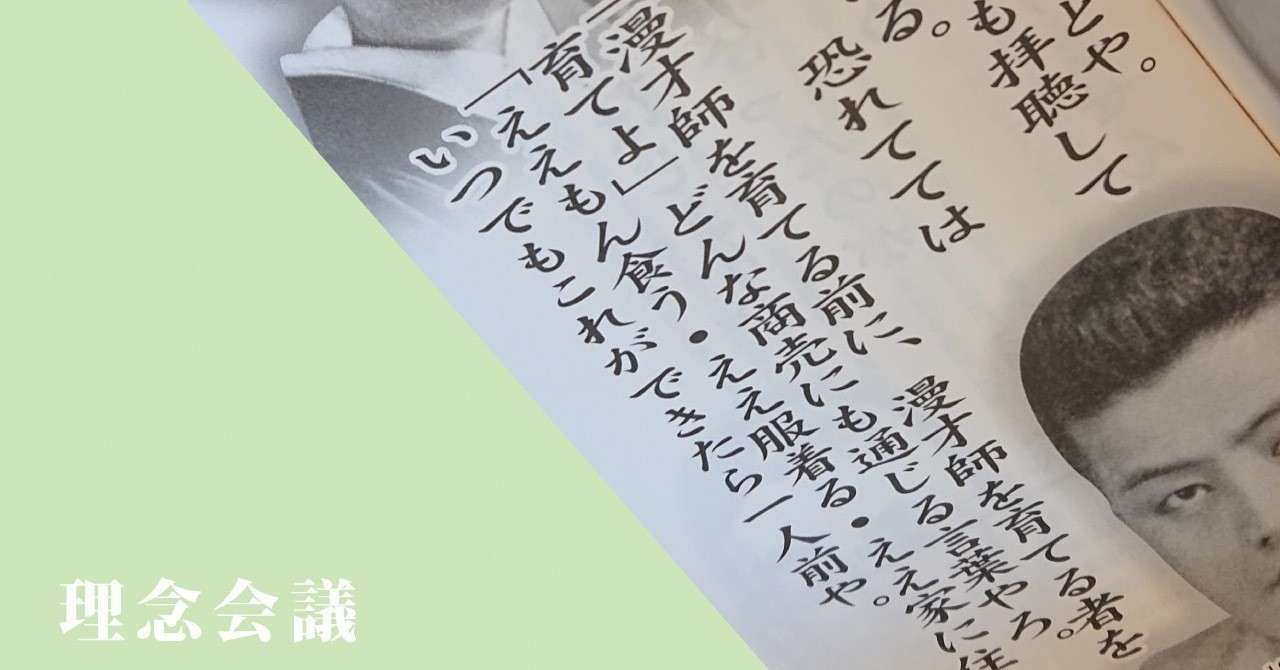 とや。
も拝聴して
る。
恐れてては
「漫才師を育てる前に、漫才師を育てる者を
育てよ」どんな商売にも通じる言葉やろ。
「ええもん食う・ええ服着る・ええ家に住
いつでもこれができたら一人前や。
理念会議